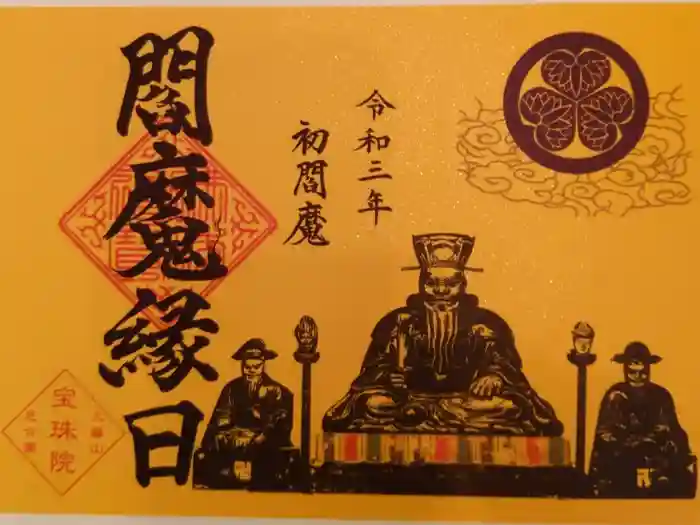 令和三年
初閻魔
閻魔縁日
三縁山
宝珠院